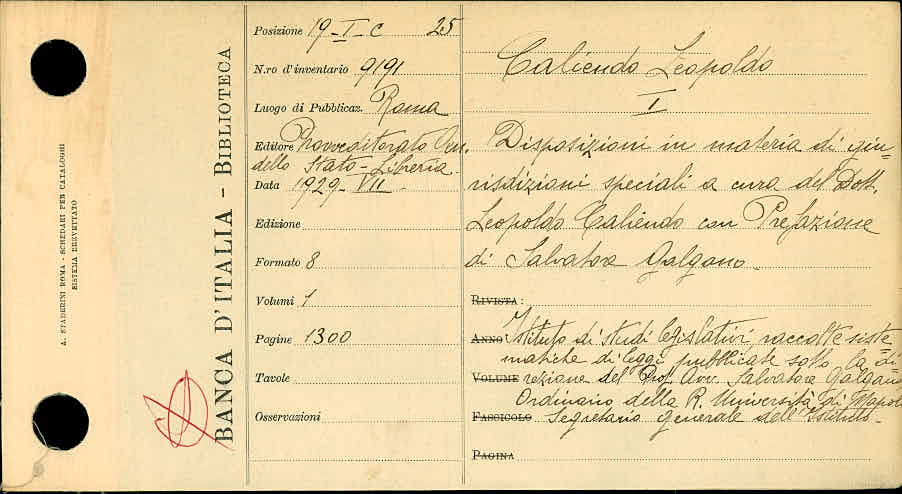 A. STADERINI ROMA - SCHEDARI PER CATALOGHI
SISTEMA BREVETTATO
BANCA D'ITALIA - BIBLIOTECA
Posizione 19-I-C 25
N.ro d'inventario 9191
Luogo di Pubblicaz. Roma
Editore Provveditorato Gen.
dello Stato - Libreria.
Data 1929-VII.
Edizione
Formato 8
Volumi 1
Pagine 1300
Tavole
Osservazioni
Caliendo Leopoldo
I
Disposizioni in materia di giu=
risdizioni speciali a cura del Dott.
Leopoldo Caliendo con Prefazione
di Salvatore Galgano.
RIVISTA:
ANNO Istituto di studi legislativi, raccolte siste=
matiche di leggi pubblicate sotto la di=
VOLUME rezione del Prof. Avv. Salvatore Galgano
Ordinario della R. Università di Napoli
FASCICOLO Segretario generale dell'Istituto.
PAGINA